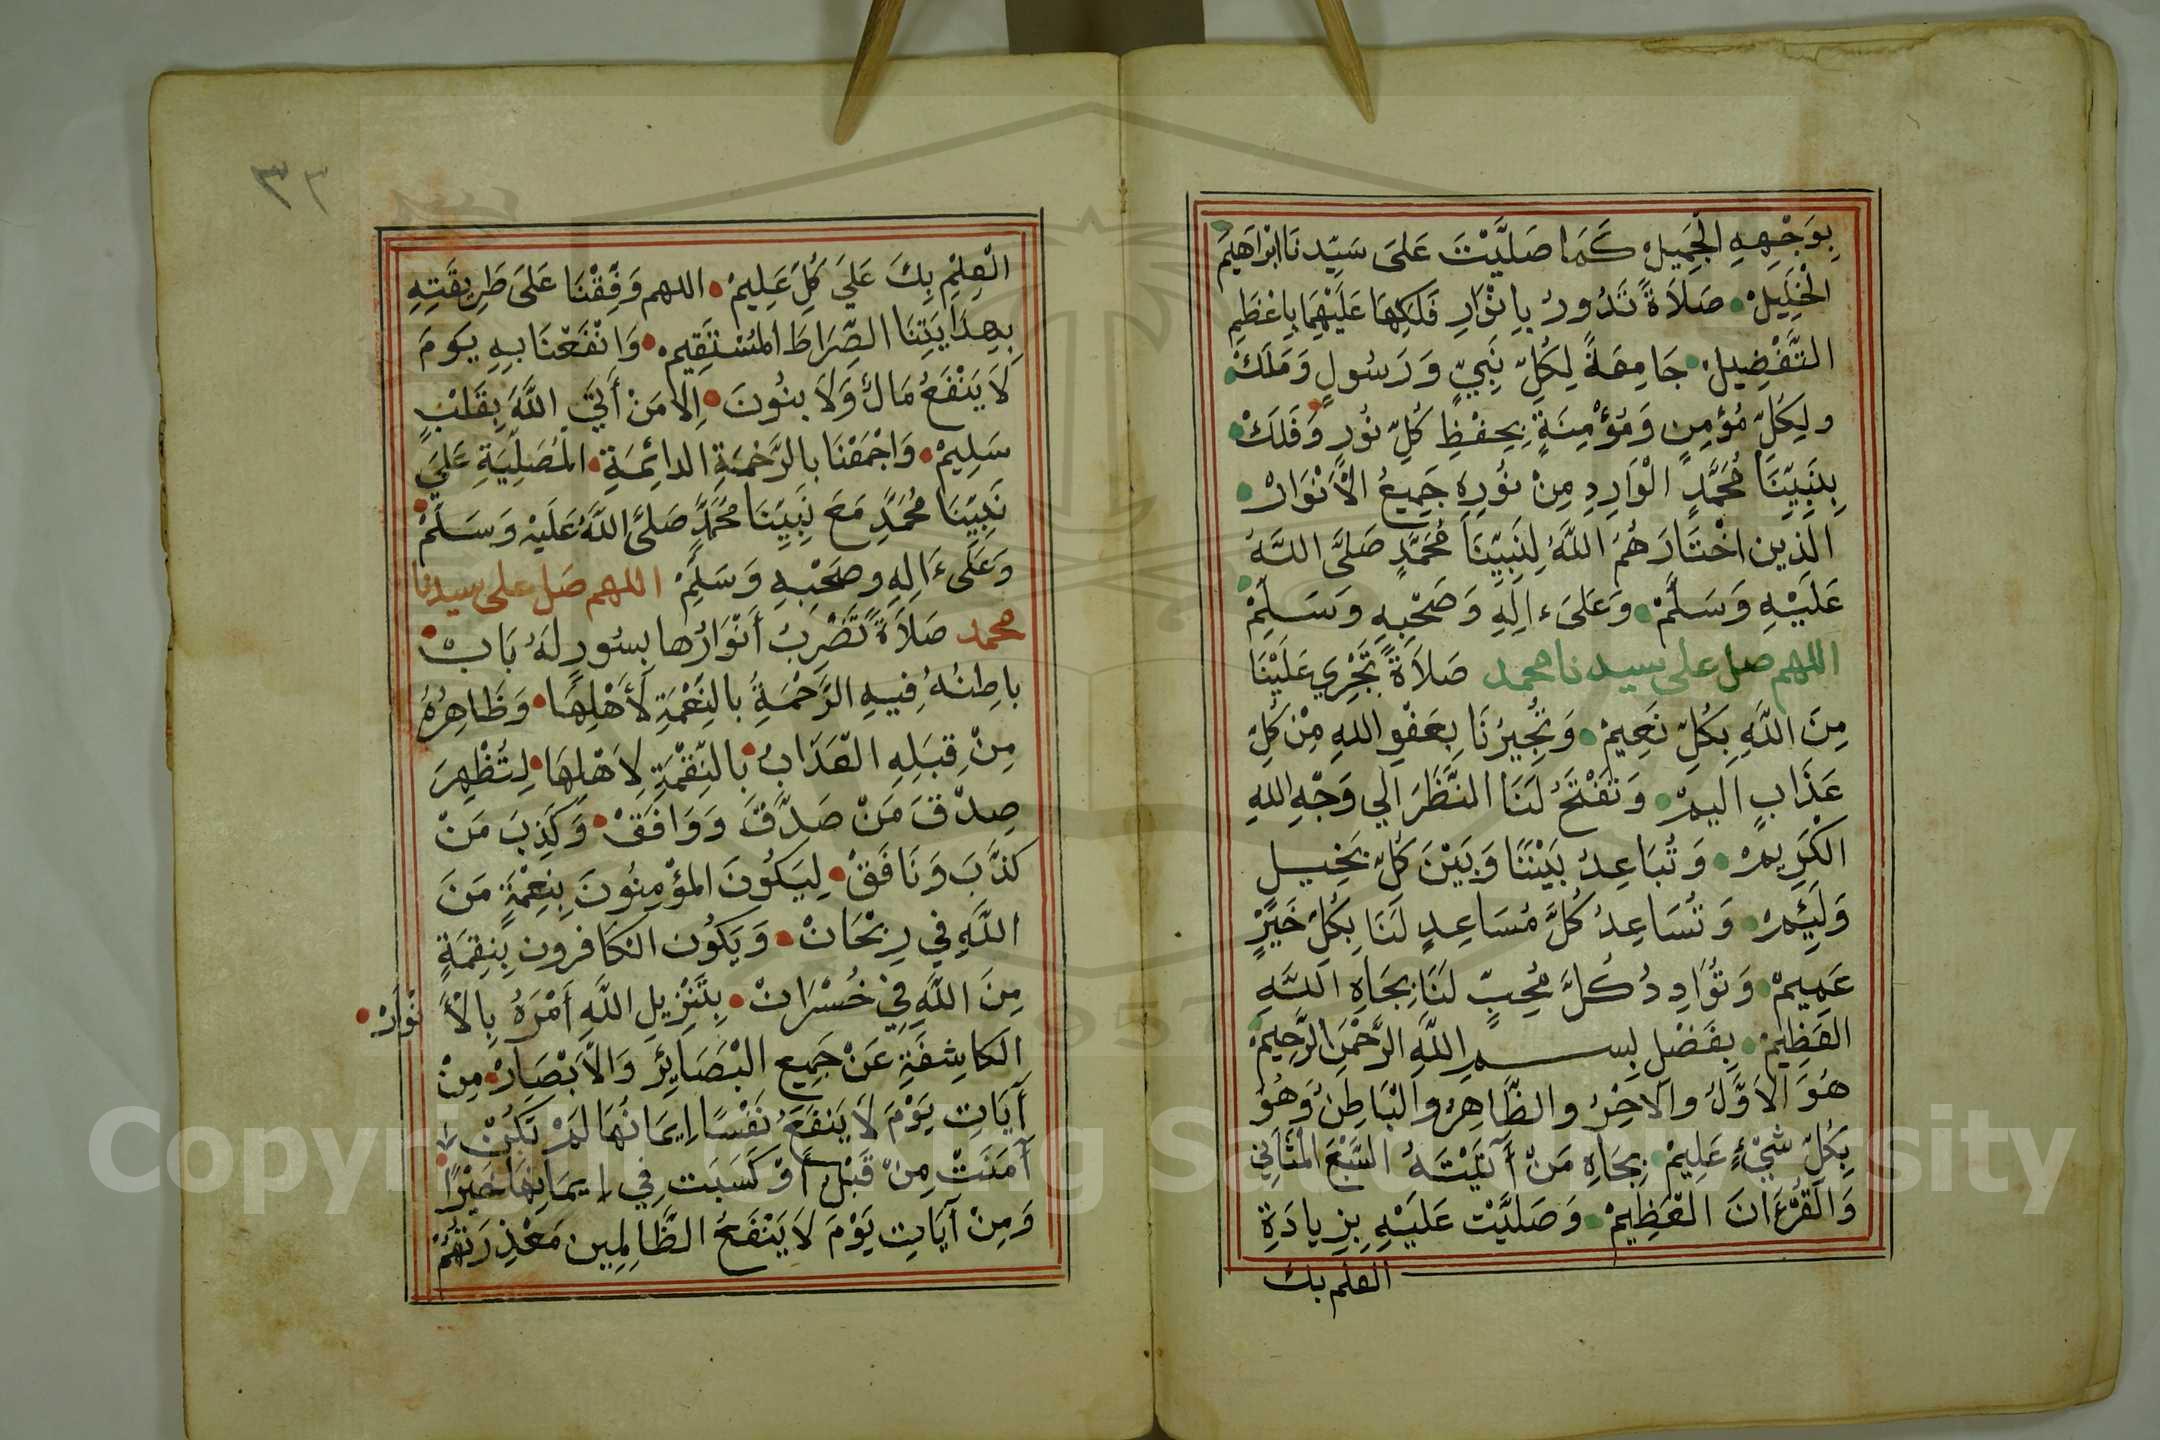 بِوَجْهِهِ الْجَمِيلْ كَمَا صَلَّيْتَ عَلَى سَيِّدِنَا ابْرَاهِيمَ
الْخَلِيلْ صَلَاةً تَدُورُ بِانْوَارِ فَلَكِهَا عَلَيْهِمَا بِاعْظَمِ
التَّفْضِيلْ جَامِعَةً لِكُلِّ نَبِيٍّ وَرَسُولٍ وَمَلَكْ
ولِكُلِّ مُؤمِنٍ وَمُؤْمِنَةٍ بِحِفْظِ كُلِّ نُورٍ وَفَلَكْ
بِنَبِيِّنَا مُحَمَّدٍ الْوَارِدِ مِنْ نُورِهِ جَمِيعُ الْأَنْوَارْ
الَّذِين اخْتَارَهُمُ اللَّهُ لِنَبِيِّنَا مُحَمَّدٍ صَلَّى اللَّهُ
عَلَيْهِ وَسَلَّمْ وَعَلَىءَالِهِ وَصَحْبِهِ وَسَلِّمْ
اللهم صل على سيدنا محمد صَلَاةً تَجْرِي عَلَيْنَا
مِنَ اللَّهِ بِكُلِّ نَعِيمْ وَتُجِيرُنَا بِعَفْوِ اللهِ مِنْ كُلِّ
عَذَابٍ اليمْ وَتَفْتَحُ لَنَا النَّظَرَ الي وَجْهِ اللهِ
الْكَرِيمْ وَتُبَاعِدُ بَيْنَنَا وَبَيْنَ كُلِّ بَخِيلٍ
وَلَئِيمْ وَتُسَاعِدُ كُلَّ مُسَاعِدٍ لَنَا بِكُلِّ خَيْرٍ
عَمِيمْ وَتُوَادِدُ كُلَّ مُحِبٍّ لَنَا بِجَاهِ اللَّهِ
العَظِيمْ بِفَضْلِ بِسمِ اللَّهِ الرَّحْمَنِ الرَّحِيمْ
هُوَ الاَوَّلُ والاخِرُ والظَّاهِرُ والْبَاطِنُ وَهُوَ
بِكُلِّ شَيْءٍ عَلِيمْ بِجَاهِ مَنْ آتَيْتَهُ السَّبْعَ الْمَثَانِي
وَالْقُرْءَانَ الْعَظِيمْ وَصَلَّيْتَ عَلَيْهِ بِزِيادَةِ
العلم بك
٣٣
الْعِلْمِ بِكَ عَلَيَ كُلِّ عَلِيمْ اللهم وَفِّقْنَا عَلَى طَرِيقَتِهِ
بِهِدَايَتِنَا الصِّرَاطَ الْمُسْتَقِيمْ وَانْفَعْنَا بِهِ يَومَ
لَا يَنْفَعُ مَالٌ وَلَا بنُونَ إِلا مَنْ أَتَي اللَّهَ بِقَلْبٍ
سَلِيمْ وَاجْمَعْنَا بالرَّحْمَةِ الدائِمَةِ الْمُصَلِّيَةِ عَلَيَ
نَبِيِّنَا مُحَمَّدٍ مَعَ نَبِيِّنَا مُحَمَّدٍ صَلَّى اللَّهُ عَلَيْهِ وَسَلَّمْ
وَعَلَىءَالِهِ وصَحْبِهِ وَسَلِّمْ اللهم صَل على سيدنا
محمد صَلَاةً تَضْرِبُ أَنْوَارُها بِسُورٍ لَهُ بَابْ
باطِنُهُ فِيهِ الرَّحْمَةُ بالنِعْمَةِ لأَهْلِهَا وَظَاهِرُهُ
مِنْ قِبَلِهِ الْعَذَابُ بِالنِّقْمَةِ لِاَهْلِهَا لِتُظْهِرَ
صِدْقَ مَنْ صَدَّقَ وَوَافَقْ وَكَذِبَ مَنْ
كَذَّبَ وَنَافَقْ لِيَكُونَ المؤْمِنُونَ بِنِعْمَةٍ مَنَ
اللَّهِ في رِبْحَانْ وَيَكُون الكَافرون بِنِقمَةٍ
مِنَ اللَّهِ فِي خُسْرَانْ بِتَنْزِيلِ اللَّهِ أَمْرَهُ بِالْأَنْوَارْ
الكاشِفَةِ عَنْ جَمِيع الْبَصَايِرْ وَالْأَبْصَارْ مِنْ
آيَاتِ يَوْمَ لَا يَنفَعُ نَفْسًا إِيمَانُهَا لَمْ تَكُنْ
آمَنَتْ مِنْ قَبْلُ أَوْ كَسَبَت فِي إِيمَانِهَا خَيْرًا
وَمِنْ آيَاتِ يَوْمَ لَا يَنْفَعُ الظَّالِمِين مَعْذِرَتُهُمْ
Copyright © King Saud University
1957